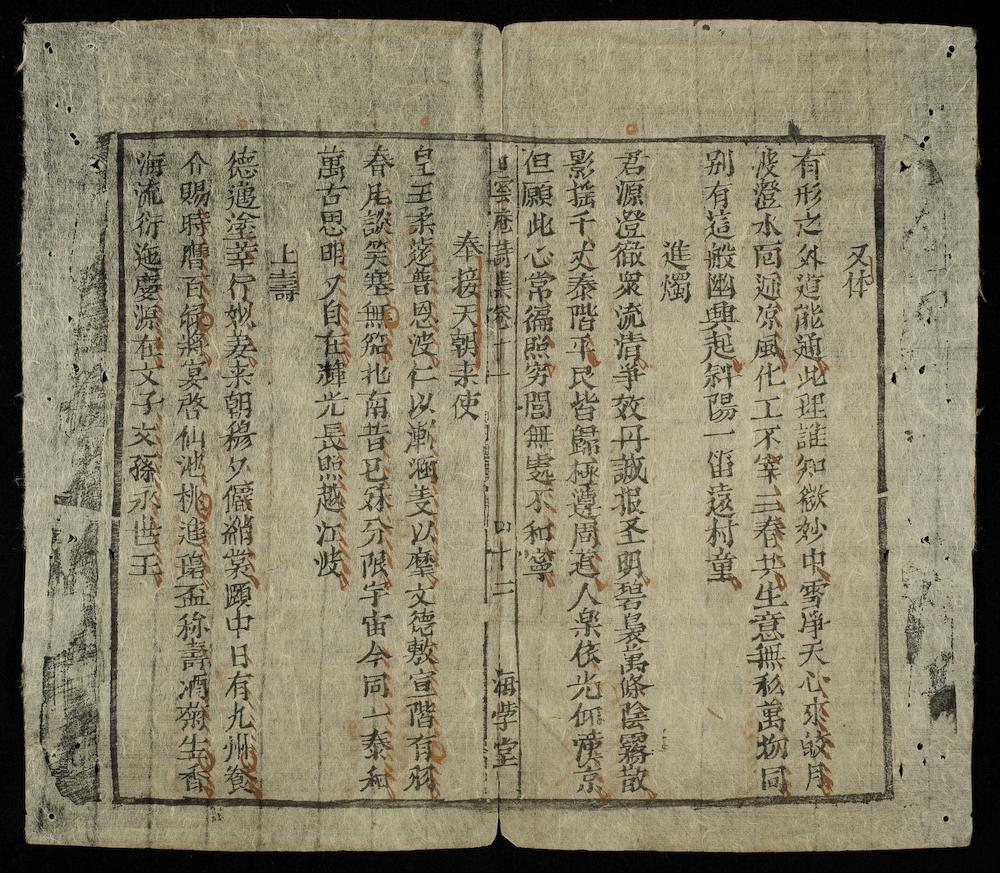 又体
有形之外道能通此理誰知微妙中雪净天心來皎月
波澄水面迎凉風化工不宰三春共生意無私萬物同
别有這般幽興起斜陽一笛遠村童
進燭
君源澄徹衆流清爭效丹誠报圣明碧裊萬條陰霧散
影揺千丈泰階平民皆歸極遵周道人楽依光仰漢京
但願此心常徧照穷閻無處不和寧
白雲庵詩集卷十一 四十三 海学堂
奉接天朝来使
皇王柔逺普恩波仁以漸涵㐌以摩文德敷宣階有羽
春尾談笑塞無笳北南昔已分限宇宙今同一泰和
萬古思明又自在輝光長照越江波
上壽
德邁塗莘行姒姜来朝穆夕僊綃裳頣中日有九州養
介賜時膺百禄將宴啓仙池桃進瑞盃称壽酒菊生香
海流衍迤慶源在文子文孫丞世王